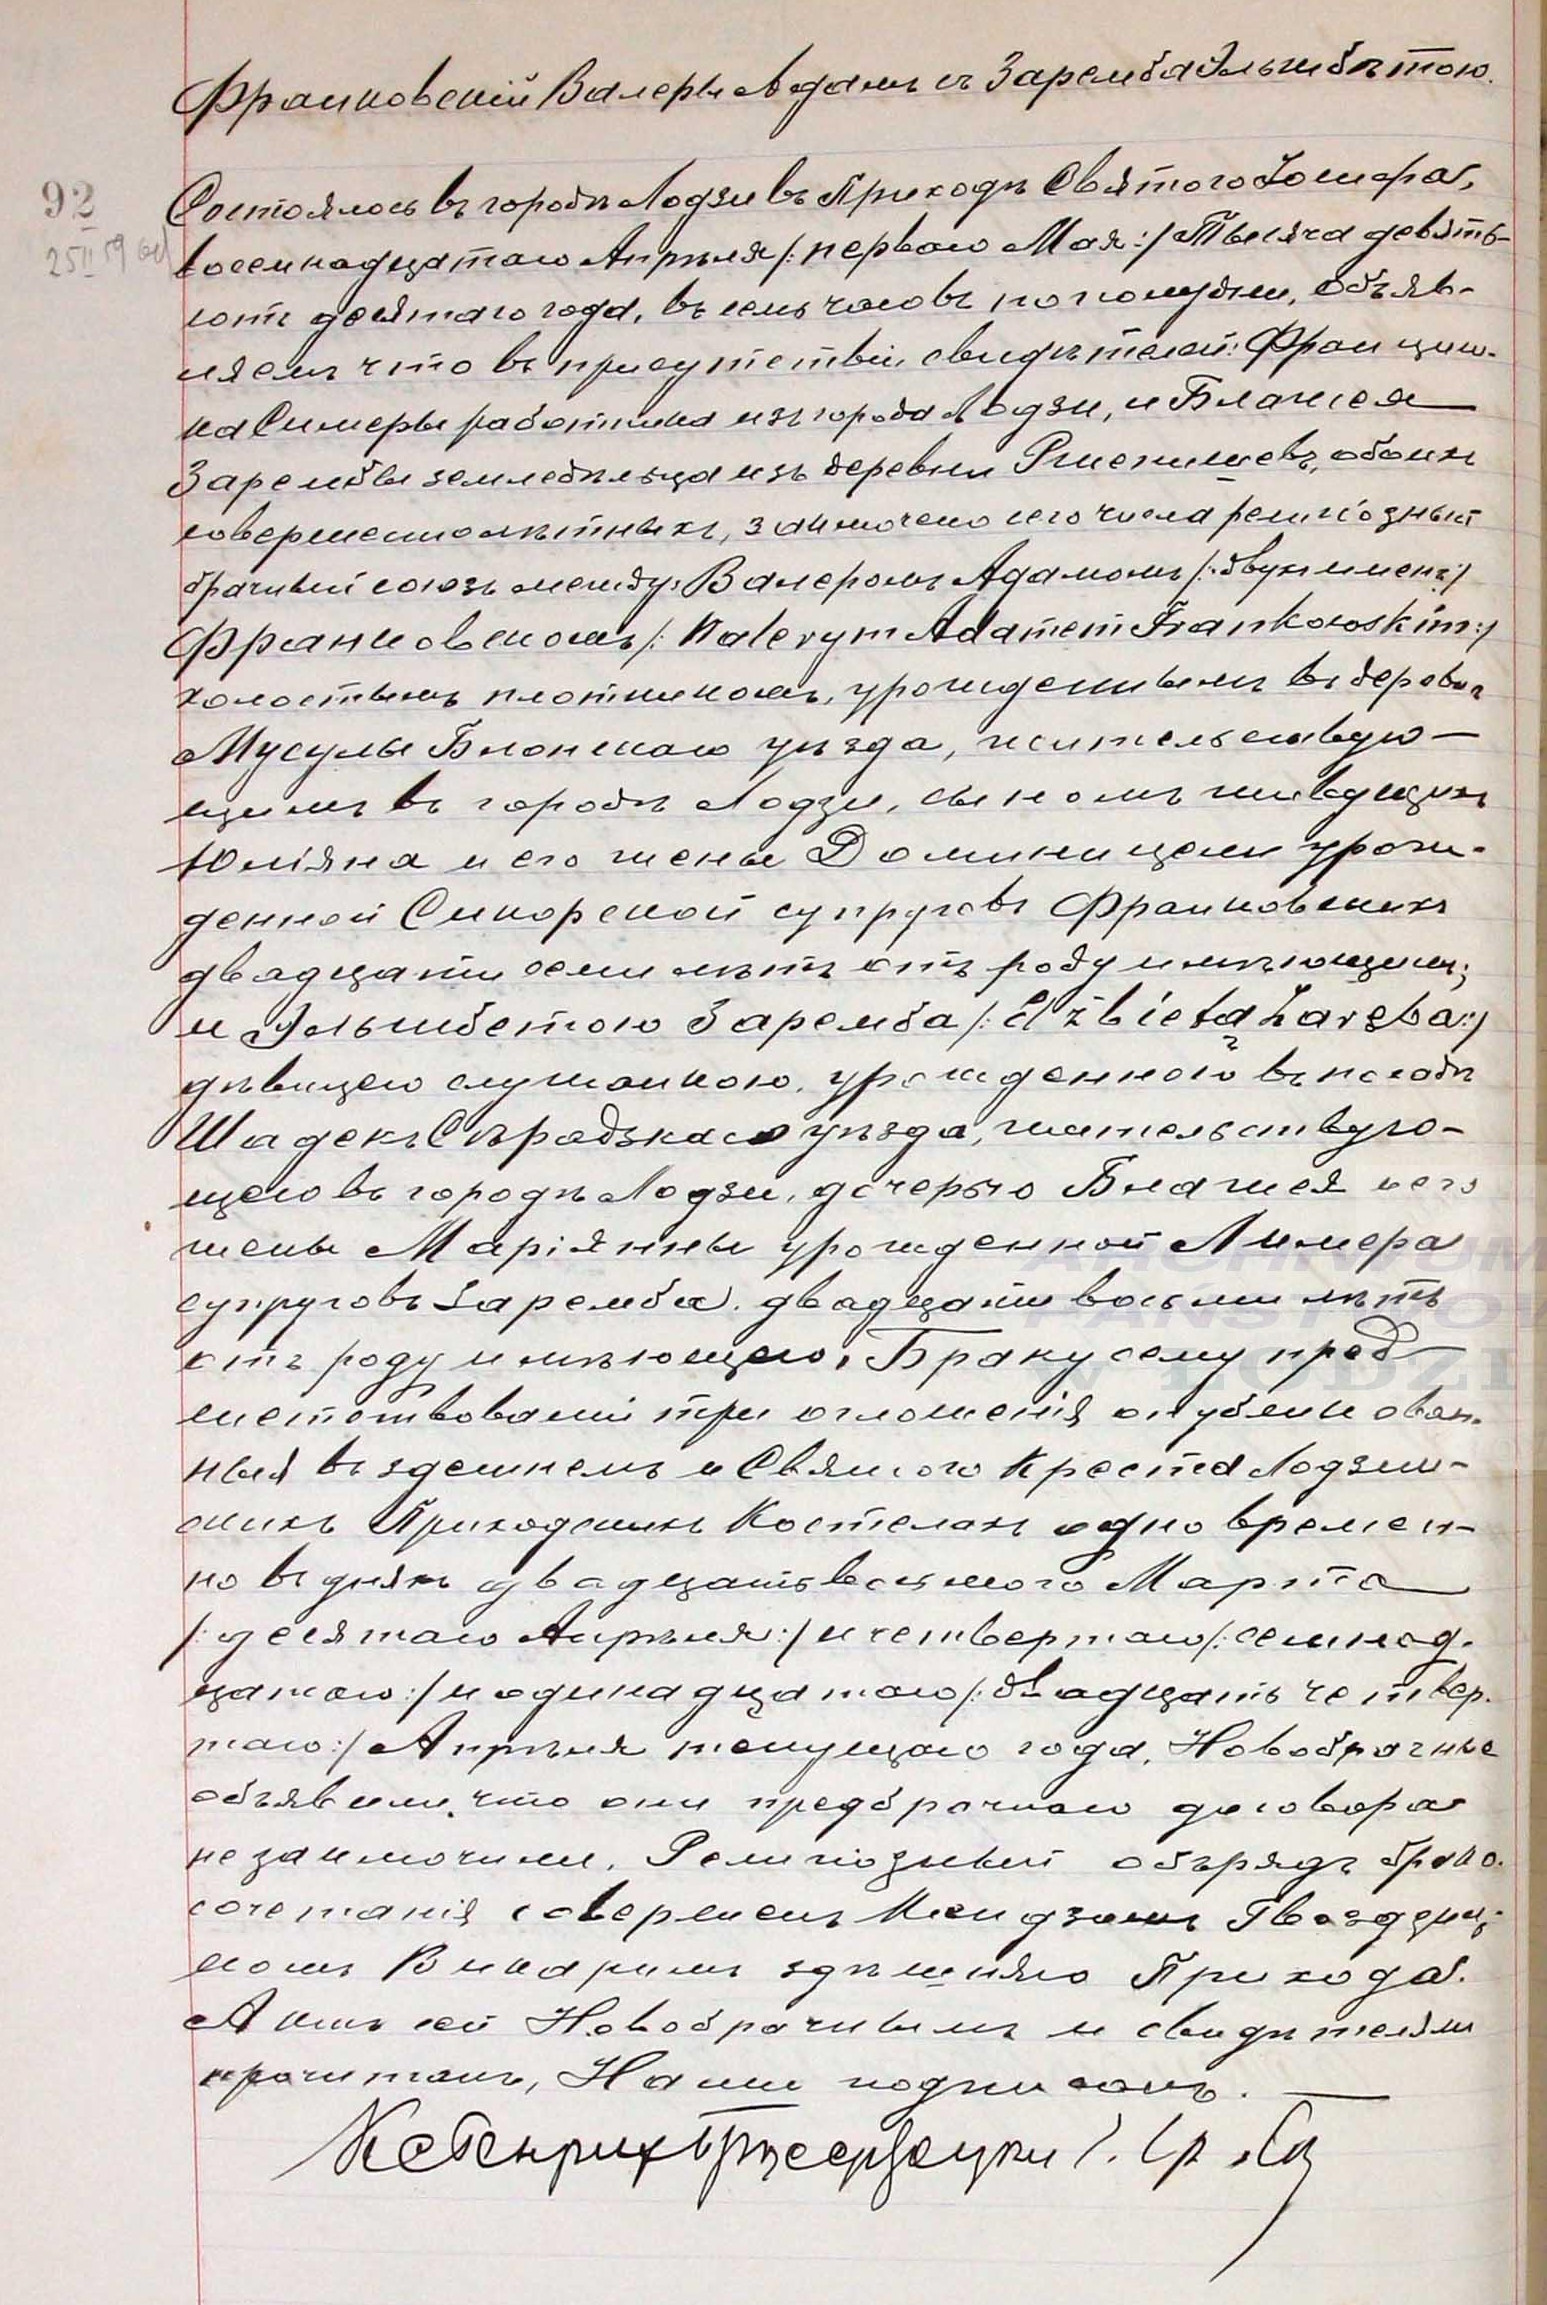 Франковскій Валеры Адамъ съ Заремба Эльжбѣтою.
92
25 II 59
Состоялось въ городѣ Лодзи въ Приходѣ Святого Іосифа,
восемнадцатаго Апрѣля /:перваго Мая:/ Тысяча девять-
сотъ десятаго года, въ семь часовъ пополудни. Объяв-
ляемъ что въ присутствіи свидѣтелей: Франциш-
ка работника изъ города Лодзи, и Блажея
Зарембы земледѣльца изъ деревни обоихъ
совершеннолѣтныхъ, заключено сего числа религіозный
брачный союзъ между: Валеромъ Адамомъ /:двухъ именъ:/
Франковскомъ /: Walerym Adamem Frankowskim:/
холостымъ плотникомъ, урожденнымъ въ деровнѣ
Мусулы Блонскаго уѣзда, жительствую-
щимъ въ городѣ Лодзи, сыномъ живущихъ
Юліяна и его жены Доминицели урож-
денной Сикорской супруговъ Франковскихъ
двадцати семи лѣтъ отъ роду имѣющимъ;
и Эльжбетою Заремба /: Elżbietą Zaręba:/
дѣвицею служанкою, урожденною въ посадѣ
Шадекъ Сѣрадзкаго уѣзда, жительствую-
щею въ городѣ Лодзи, дочерью Блажея и его
жены Маріянны урожденной Лимера
супруговъ Заремба, двадцати восьми лѣтъ
отъ роду имѣющею. Браку сему пред
шествовали три оглошенія опубликован-
ныя въ здешнемъ и Святого Креста Лодзин-
скихъ Приходскихъ Костелахъ одновремен-
но въ дняхъ двадцать восьмого Марта
/:десятаго Апрѣля:/ и четвертаго /:семнад-
цатаго:/ и одинадцатаго /:двадцать четвер-
таго:/ Апрѣля текущаго года. Новобрачные
объявили, что они предбрачнаго договора
не заключили. Религіозный обърядъ брако-
сочетанія совершенъ Ксендзомъ
Викаримъ здѣшняго Прихода.
Актъ сей Новобрачнымъ и свидѣтелямъ
прочитанъ, Нами подписанъ.
Кс Генрихъ
ARCHIWUM
PAŃSTWOWE
W ŁODZI